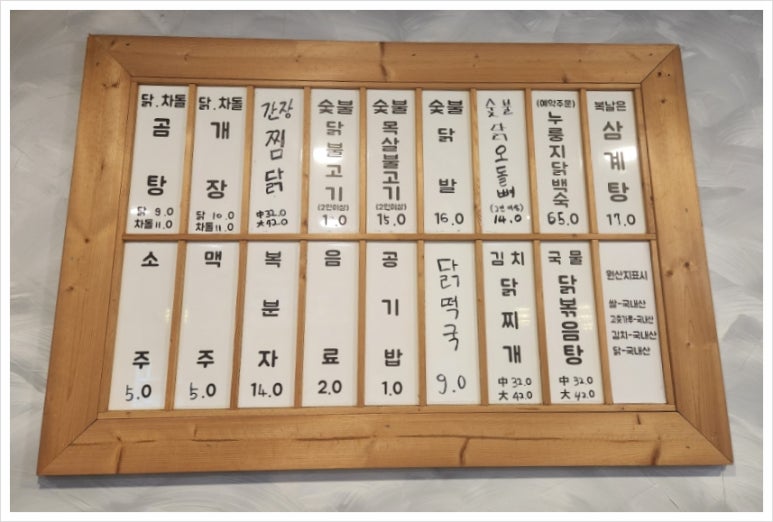 닭.차돌
곰탕
닭 9.0
차돌 11.0
닭.차돌
개장
닭 10.0
차돌 11.0
간장
찜닭
中 32.0
大 42.0
숯불
닭불고기
(2인이상)
숯불
목살불고기
(2인이상)
15.0
숯불
닭발
16.0
숯불
닭오돌뼈
14.0
(예약주문)
누룽지닭백숙
65.0
복날은
삼계탕
17.0
소주
5.0
맥주
5.0
복분자
14.0
음료
2.0
공기밥
1.0
닭떡국
9.0
김치
닭찌개
中 32.0
大 42.0
국물
닭볶음탕
中 32.0
大 42.0
원산지표시
쌀-국내산
고춧가루-국내산
김치-국내산
닭-국내산